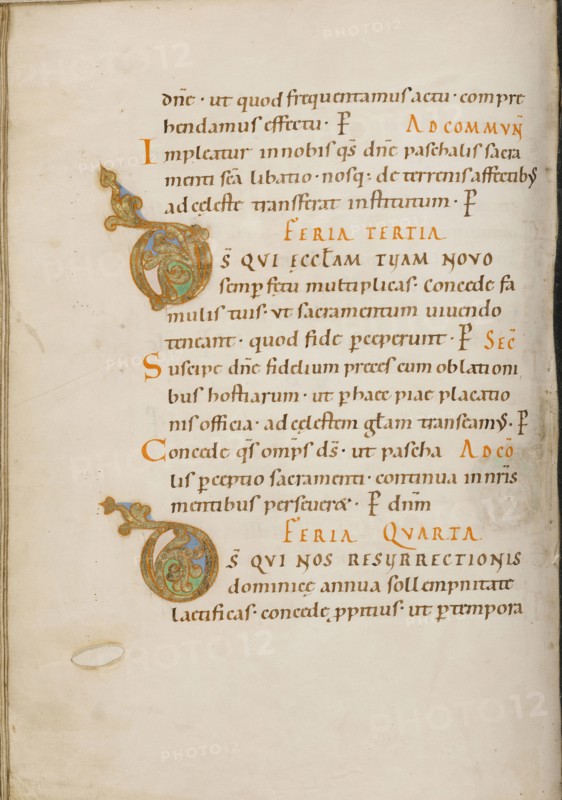 dn̄e · ut quod frequentamus actu · compre
hendamus effectu · P AD COMMVN̄
Impleatur in nobis qs̄ dn̄e paschalis sacra
menti sc̄a libatio · nosq: de terrenis affectibȳ
ad cęleste transferat institutum · P
FERIA TERTIA
DS̄ QVI ĘCCƚAM TUAM NOVO
semp̲ fętu multiplicas · Concede fa
mulis tuis · ut sacramentum uiuendo
teneant · quod fide p̲ceperunt · P SEC̄
Suscipe dn̄e fidelium preces cum oblationi
bus hostiarum · ut p̲ hace piae placatio
nis officia · ad cęlestem gƚam transeamȳ · P
Concede qs̄ omp̄s ds̄ · ut pascha AD CŌ
lis p̲ceptio sacramenti · continua in nr̄is
mentibus perseueret · P dn̄m
FERIA QVARTA
DS̄ QVI NOS RESURRECTIONIS
dominicę annua sollempnitate
laetificas · concede p̲pitius · ut p̲ tempora
PHOTO12